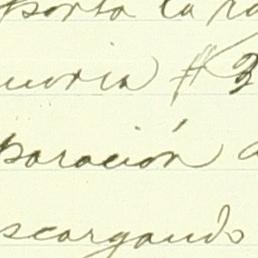 porto la ra
moria # 3
paración a
scargando